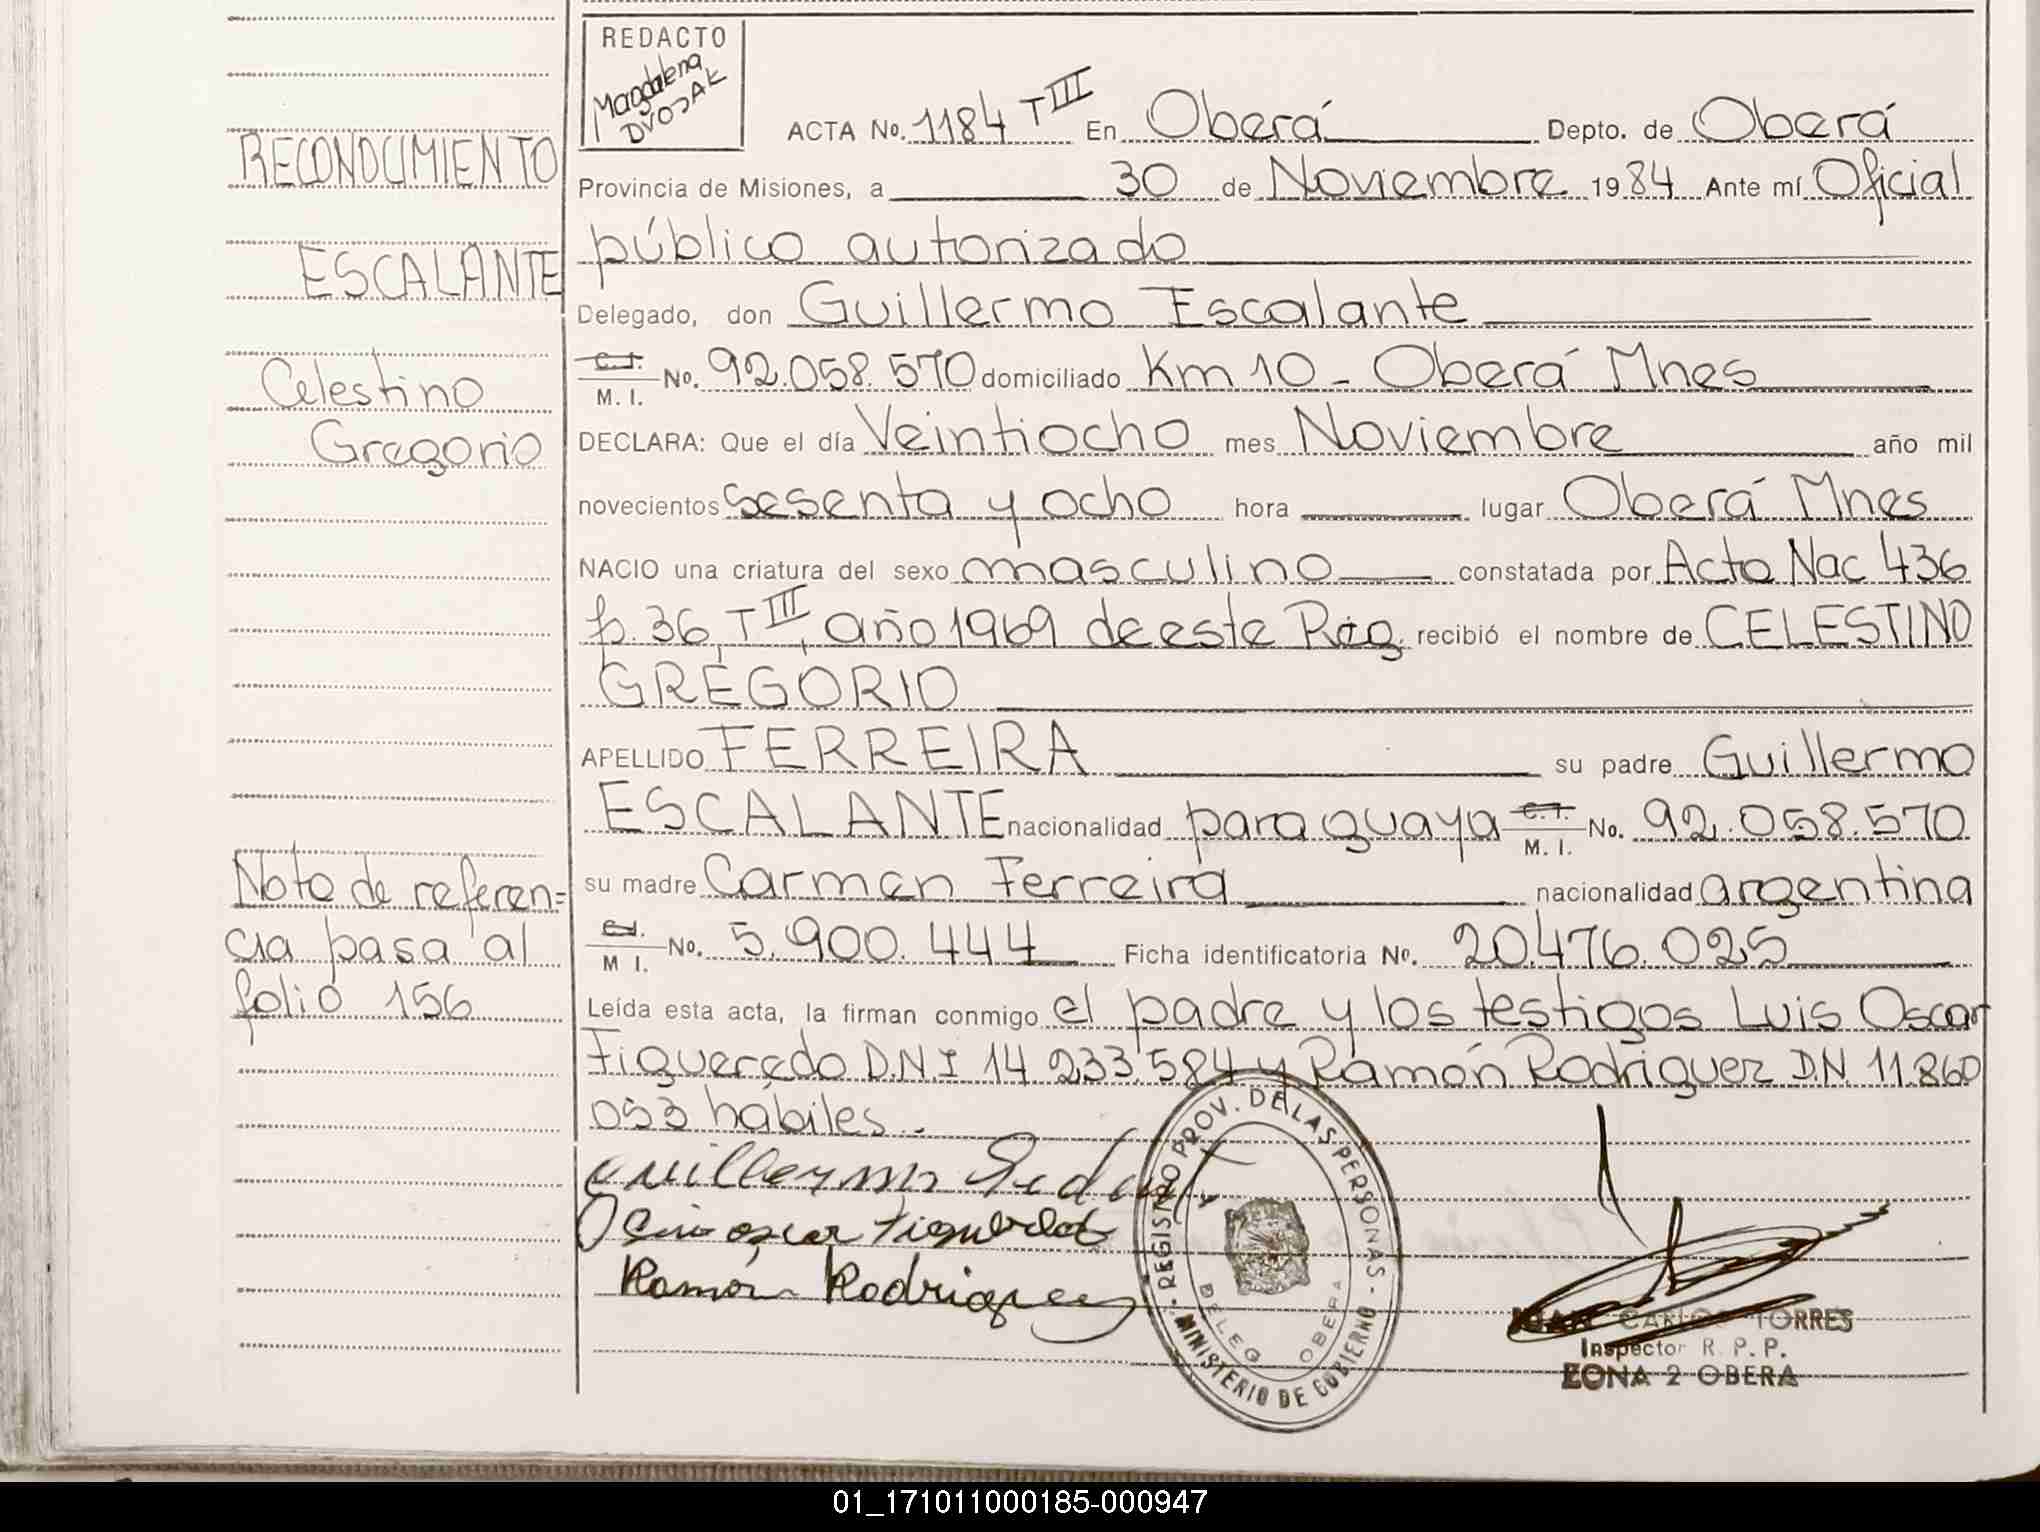 REDACTO
Magdalena
DVOJAK
ACTA No. 1184 TIII En Oberá Depto. de Oberá
RECONOCIMIENTO
Provincia de Misiones, a 30 de Noviembre 1984 Ante mí Oficial
público autorizado
ESCALANTE
Delegado, don Guillermo Escalante
C.I.
M. I. No. 92.058.570 domiciliado Km 10 - Oberá Mnes
Celestino
Gregorio
DECLARA: Que el día Veintiocho mes Noviembre año mil
novecientos sesenta y ocho hora lugar Oberá Mnes
NACIO una criatura del sexo masculino constatada por Acta Nac 436
f. 36, TIII, año 1969 de este Reg. recibió el nombre de CELESTINO
GREGORIO
APELLIDO FERREIRA su padre Guillermo
ESCALANTE nacionalidad paraguaya C.I. M. I. No. 92.058.570
Nota de referen=
cia pasa al
folio 156
su madre Carmen Ferreira nacionalidad argentina
C.I.
M I. No. 5.900.444 Ficha identificatoria No. 20.476.025
Leída esta acta, la firman conmigo el padre y los testigos Luis Oscar
Figueredo D.N.I 14 233.584 y Ramón Rodriguez D.N. 11.860
053 hábiles..
Guillermo
oscar Figueredo
Ramón Rodriguez
REGISTRO PROV. DE LAS PERSONAS - MINISTERIO DE GOBIERNO -
DELEG OBERA
JUAN CARLOS TORRES
Inspector R. P. P.
ZONA 2 OBERA
01_171011000185-000947